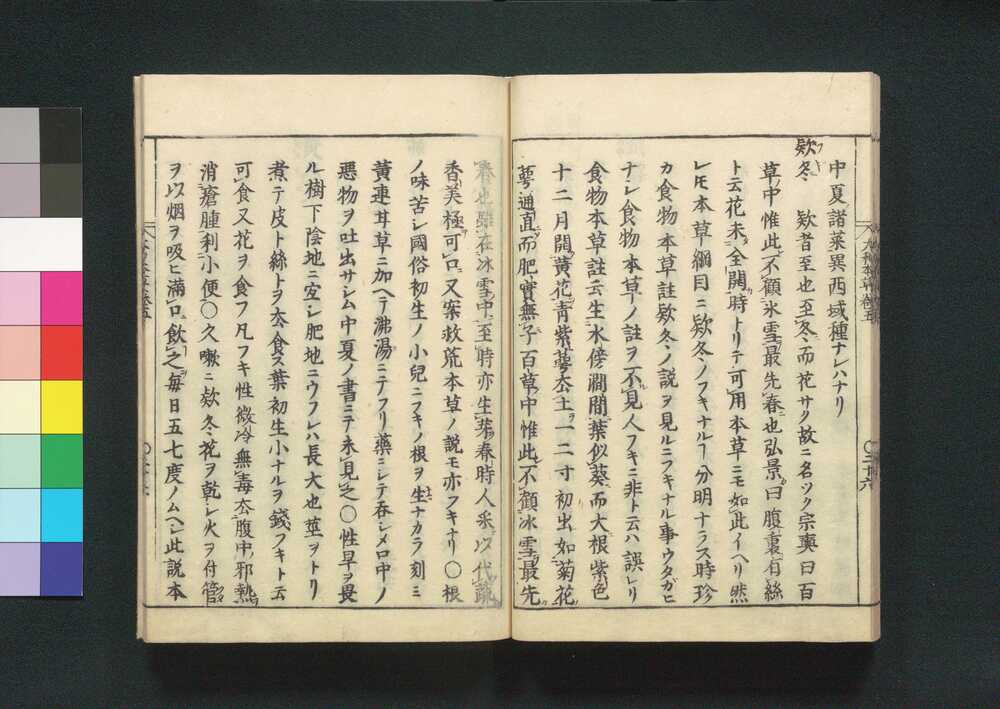 中夏ノ諸菜異西域種ナレハナリ
欵冬 欵者至也至冬而花サク故ニ名ツク宗奭曰百
草中惟此不顧氷雪最先春也弘景曰腹裏有絲
ト云花未全開時トリテ可用本草ニモ如此イヘリ然
レモ本草綱目ニ欵冬ノフキナルヿ分明ナラス時珍
カ食物本草註欵冬ノ説ヲ見ルニフキナル事ウタガヒ
ナシ食物本草ノ註ヲ不見人フキニ非ト云ハ誤レリ
食物本草註云生水傍澗間葉似葵而大根紫色
十二月開黄花青紫蕚去土一二寸初出如菊花
蕚通直而肥實無子百草中惟此不顧冰雪最先
春也雖在冰雪中至時亦生芽春時人采以代蔬
香美極可口又案救荒本草ノ説モ亦フキナリ〇根
ノ味苦シ國俗初生ノ小兒ニフキノ根ヲ生ナカラ刻ミ
黄連甘草ニ加ヘテ沸湯ニテフリ藥ニシテ呑シメ口中ノ
悪物ヲ吐出サシム中夏ノ書ニテ未見之〇性旱ヲ畏
ル樹下陰地ニ宜シ肥地ニウフレハ長大也莖ヲトリ
煮テ皮ト絲トヲ去食ス葉初生小ナルヲ錢フキト云
可食又花ヲ食フ凡フキ性微冷無毒去腹中邪熱
消瘡腫利小便〇久嗽ニ欵冬花ヲ乾シ火ヲ付管
ヲ以烟ヲ吸ヒ滿口飲之毎日五七度ノムヘシ此説本